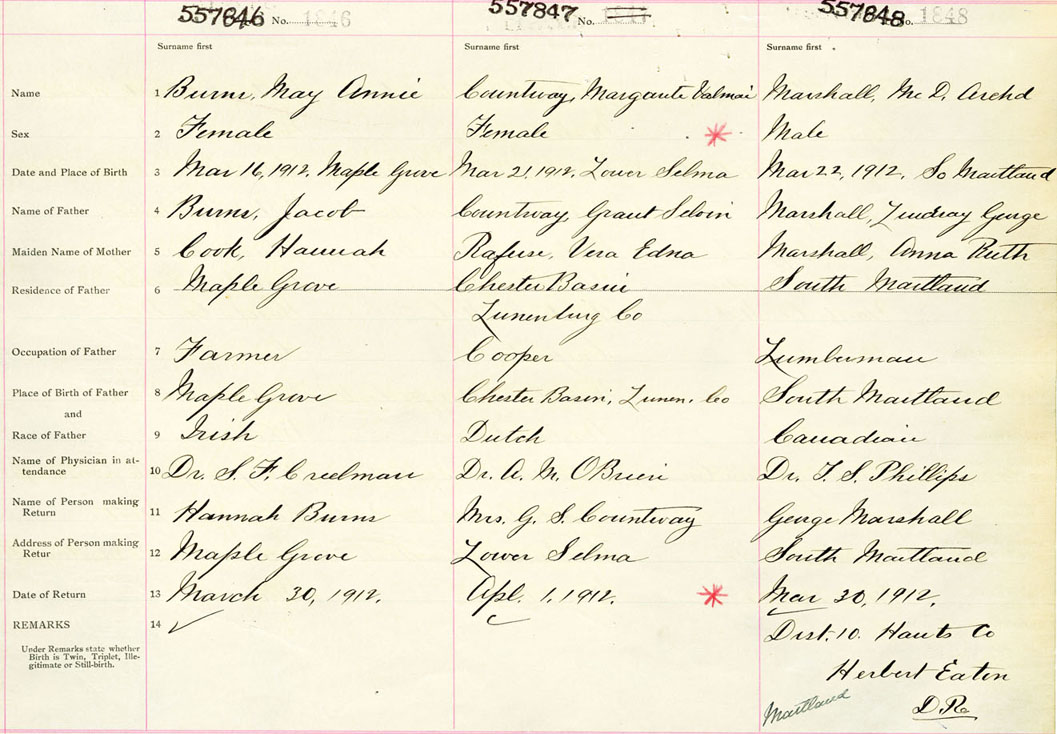 557646 No. 1846 557847 No. 557648 No. 1848
Surname first Surname first Surname first
Name 1 Burns, May Annie Countway, Margaute Valmai Marshall, Mc D. Archd
Sex 2 Female Female * Male
Date and Place of Birth 3 Mar 16, 1912, Maple Grove Mar 21, 1912, Lower Selma Mar 22, 1912, So Maitland
Name of Father 4 Burns, Jacob Countway, Grant Selvin Marshall, Lindsay George
Maiden Name of Mother 5 Cook, Hannah Rafuse, Vera Edna Marshall, Anna Ruth
Residence of Father 6 Maple Grove Chester Basin South Maitland
Lunenburg Co
Occupation of Father 7 Farmer Cooper Lumberman
Place of Birth of Father 8 Maple Grove Chester Basin, Lunen. Co South Maitland
and
Race of Father 9 Irish Dutch Canadian
Name of Physician in at-
tendance 10 Dr. S. F. Creelman Dr. A. M. OBrien Dr. T. S. Phillips
Name of Person making
Return 11 Hannah Burns Mrs. G. S. Countway George Marshall
Address of Person making
Retur 12 Maple Grove Lower Selma South Maitland
Date of Return 13 March 30, 1912. Apl. 1, 1912. * Mar 30, 1912.
REMARKS 14 ✓ Dist. 10. Hants Co
Under Remarks state whether
Birth is Twin, Triplet, Ille-
gitimate or Still-birth.
Herbert Eaton
Maitland D.R.